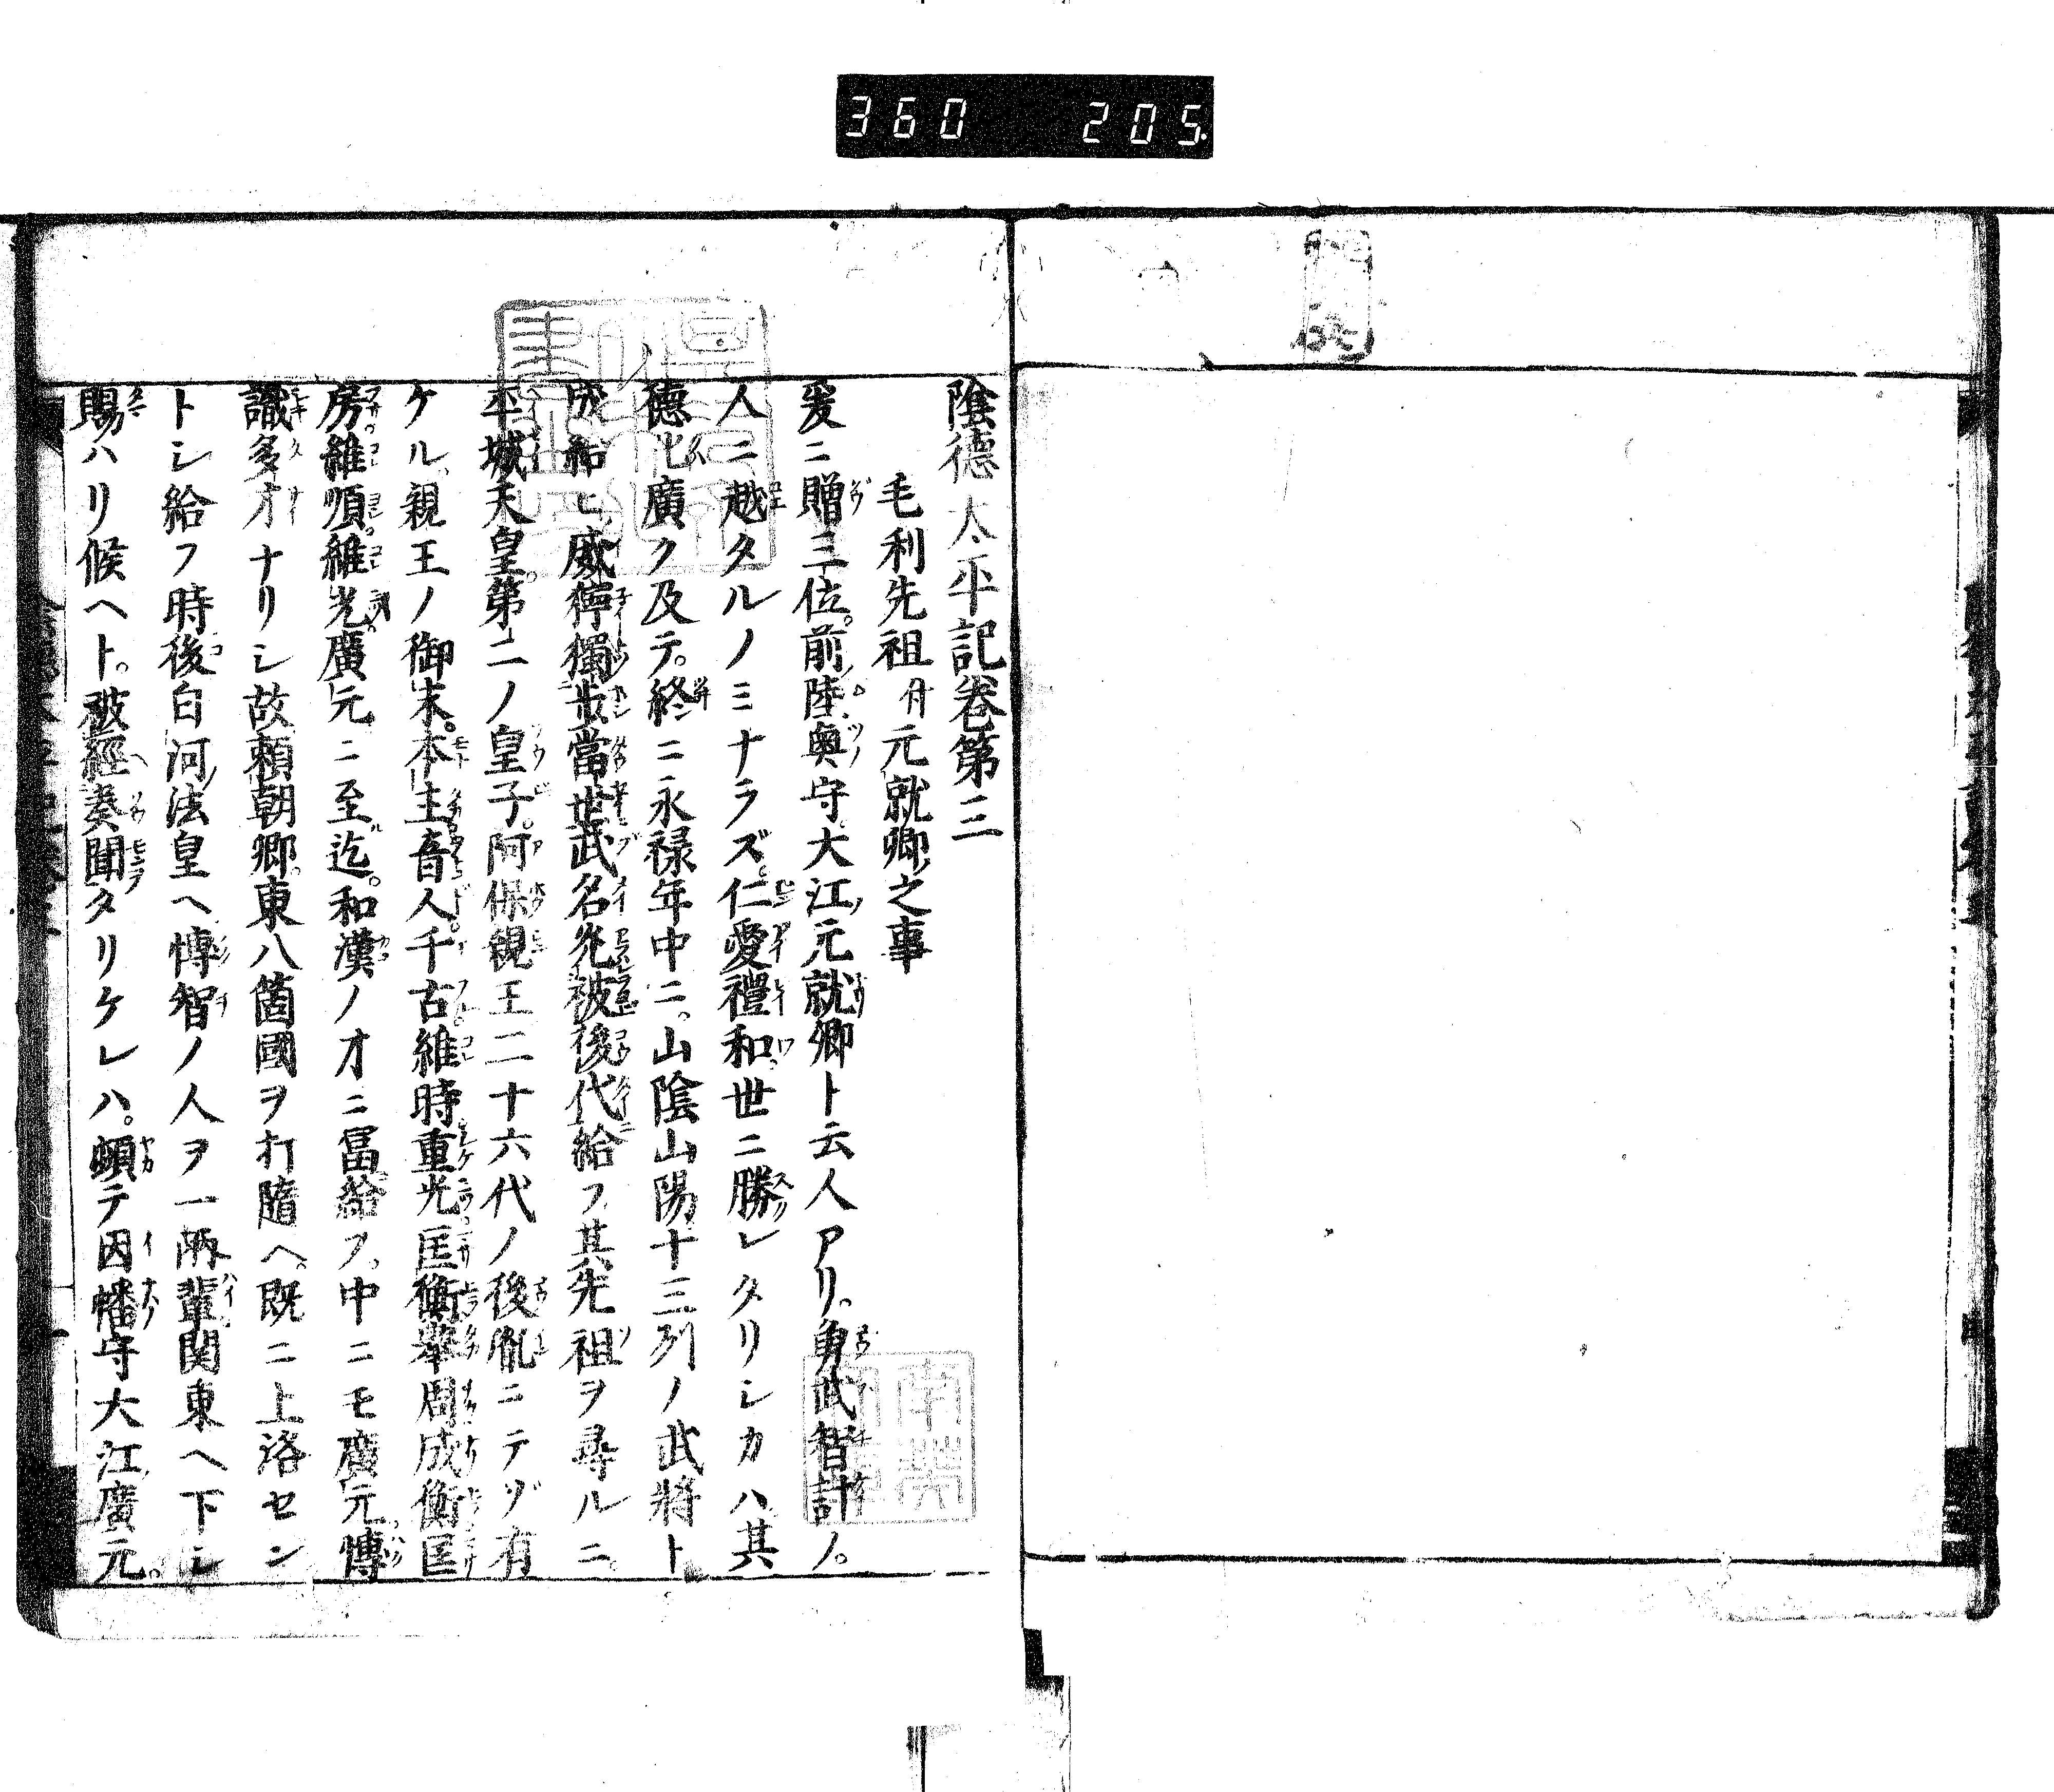 360 205.
陰德太平記卷第三
毛利先祖付元就卿之事
爰ニ贈三位。前陸奥守大江元就卿ト云人アリ。勇武智計ノ。
人ニ越タルノミナラズ。仁愛禮和世ニ勝レタリシカハ其
德化廣ク及テ。終ニ永禄年中ニ。山陰山陽十三列ノ武將ト
成給ヒ威獨歩當世武名光被後代給フ其先祖ヲ尋ルニ。
平城天皇。第二ノ皇子。阿保親王二十六代ノ後胤ニテゾ有
ケル。親王ノ御末。本主音人千古維時重光匡衡擧周成衡匡
房。維順。維光。廣元ニ至迄。和漢ノオニ冨給フ。中ニモ廣元。博
識多オナリシ故頼朝卿。東八箇國ヲ打隨ヘ。既ニ上洛セン
トシ給フ時後白河法皇ヘ博智ノ人ヲ一兩輩関東ヘ下シ
賜ハリ候ヘト。被經奏聞タリケレハ。頓テ因幡守大江廣元。